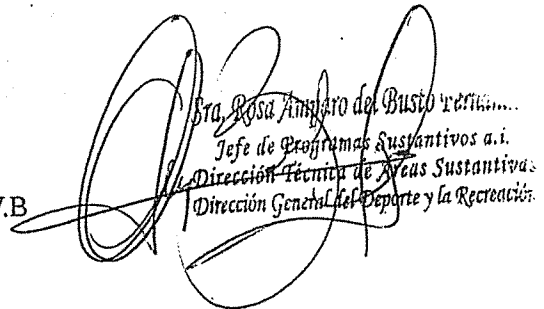 Bra. Rosa Amparo del Busto
Jefe de Programas Sustantivos a.i.
Dirección Técnica de Areas Sustantivas
V.B
Dirección General del Deporte y la Recreación